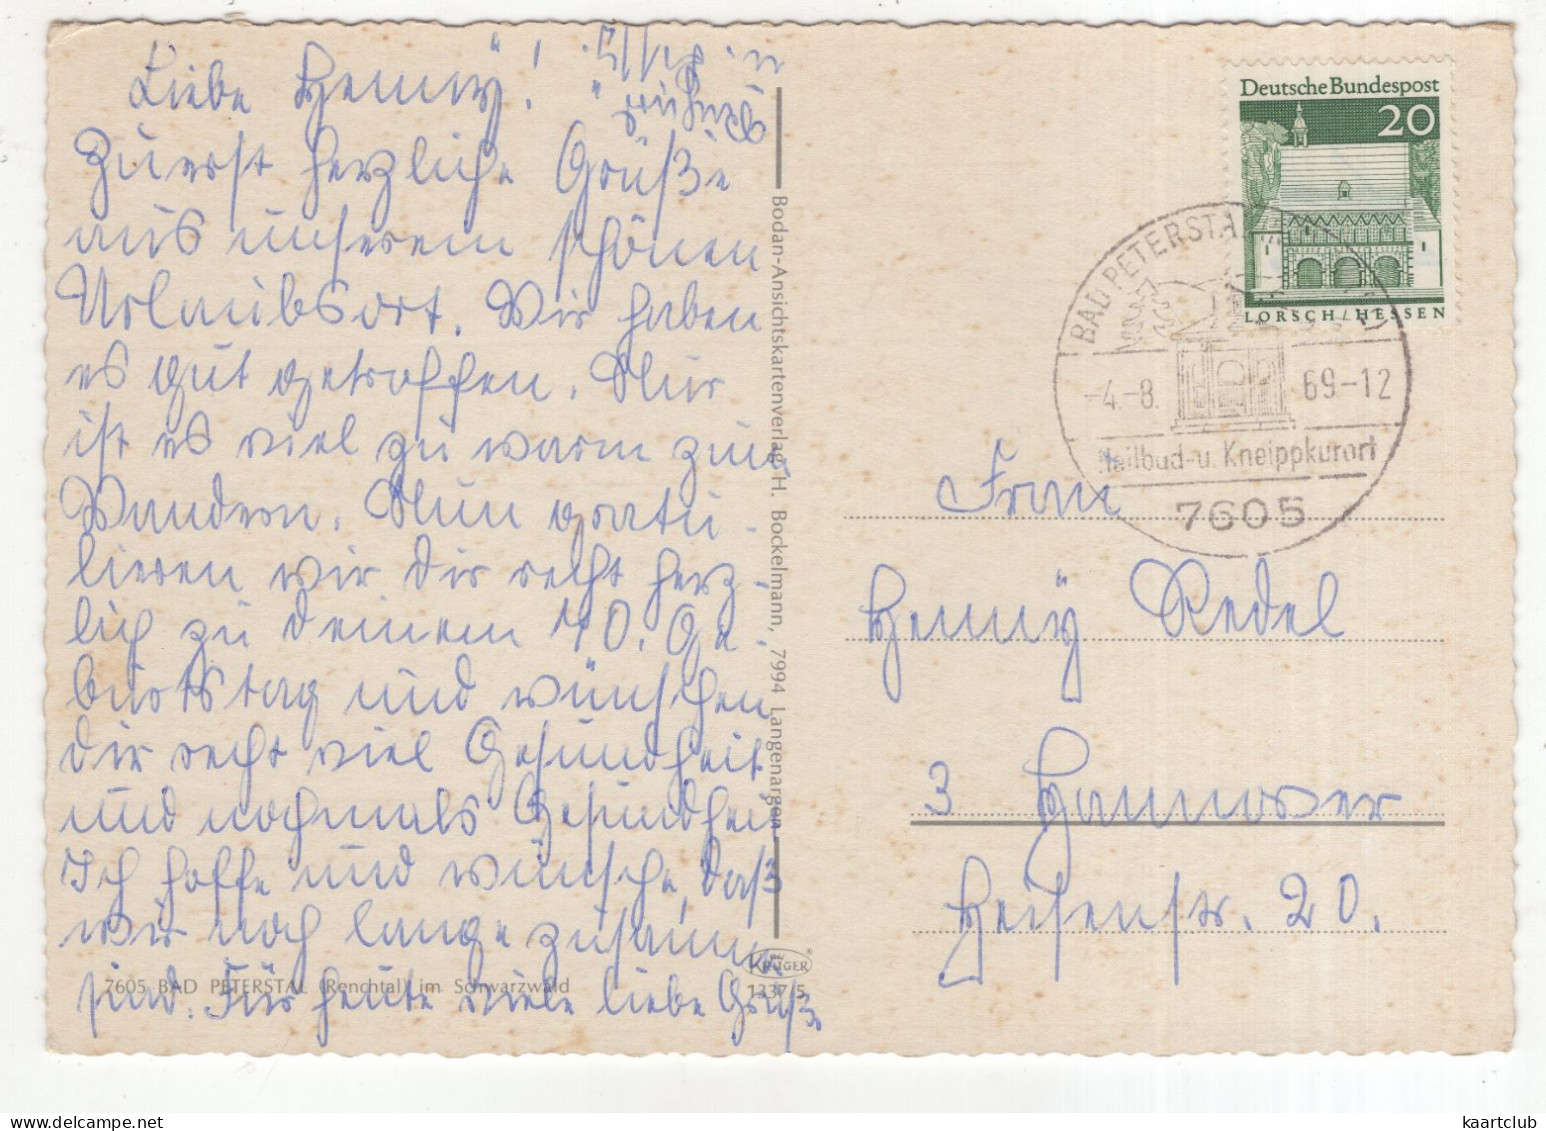 Liebe Hennÿ!
Zuerst herzliche Grüße
aus unserem schönen
Urlaubsort. Wir haben
es gut getroffen. Nur
ist es viel zu warm zum
Wandern. Nun gratu-
lieren wir dir recht herz-
lich zu deinem 70. Ge-
burtstag und wünschen
dir recht viel Gesundheit
und nochmals Gesundheit
Ich hoffe und wünsche, daß
wir noch lange zusammen
sind. Für heute viele liebe Grüße
7605 BAD PETERSTAL (Renchtal) im Schwarzwald
Bodan-Ansichtskartenverlag H. Bockelmann, 7994 Langenargen
KRÜGER
1337/5
Deutsche Bundespost
20
LORSCH/HESSEN
BAD PETERSTAL
-4.-8. 69-12
Heilbad-u. Kneippkurort
7605
Frau
Hennÿ Redel
3 Hannover
Heisenstr. 20.
kaartclub